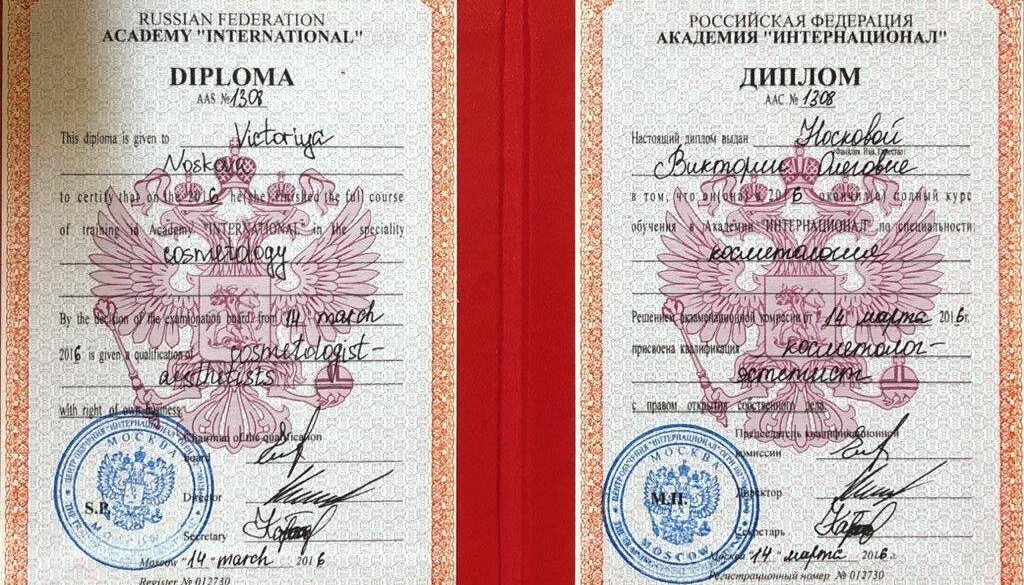 RUSSIAN FEDERATION
ACADEMY "INTERNATIONAL"
DIPLOMA
AAS № 1308
This diploma is given to Victoriya
Noskova
to certify that on the 2016 he/she finished the full course
of training in Academy "INTERNATIONAL" in the speciality
cosmetology
By the decision of the examination board from "14" march
2016 is given a qualification of cosmetologist-
aesthetists
with right of own business.
Chairman of the qualification
board
Director
S.P.
Secretary
Moscow "14" march 2016
Register № 012730
МОСКВА
РОССИЙСКАЯ ФЕДЕРАЦИЯ
АКАДЕМИЯ "ИНТЕРНАЦИОНАЛ"
ДИПЛОМ
ААС № 1308
Настоящий диплом выдан Носковой
Викторие Олеговне
в том, что он(она) в 2016 окончил(а) полный курс
обучения в Академии "ИНТЕРНАЦИОНАЛ" по специальности
косметология
Решением экзаменационной комиссии от "14" марта 2016г.
присвоена квалификация косметолог-
эстетист
с правом открытия собственного дела.
Председатель квалификационной
комиссии
Директор
М.П.
Секретарь
Москва "14" марта 2016г.
Регистрационный номер № 012730
МОСКВА
MOSCOW